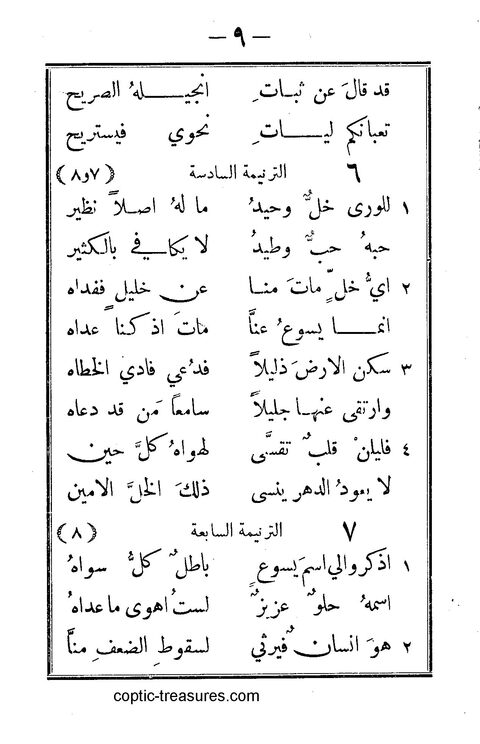 — ٩ —
قد قالَ عن ثبـاتِ انجيـلـهُ الصريح
تعبانكم ليـاتِ نحوي فيستريح
٦ الترنيمة السادسة (٧و٨)
١ للورى خلٌّ وحيدُ ما لهُ اصلاً نظير
حبهُ حبٌّ وطيدُ لا يكافي بالكثير
٢ ايُّ خلٍّ ماتَ منـا عن خليل ففداه
انمـا يسوعُ عنَّا ماتَ اذ كنا عداه
٣ سكن الارضَ ذليلاً فدُعي فادي الخطاه
وارتقى عنهـا جليلاً سامعاً مَن قد دعاه
٤ فليلن قلبٌ تقسَّى لهواهُ كلَّ حين
لا يعودُ الدهر ينسى ذلكَ الخلَّ الامين
٧ الترنيمة السابعة (٨)
١ اذكروا لي اسمَ يسوعٍ باطلٌ كلُّ سواهُ
اسمهُ حلوٌ عزيزٌ لستُ اهوى ما عداهُ
٢ هوَ انسانٌ فيرثي لسقوطِ الضعفِ منَّا
coptic-treasures.com